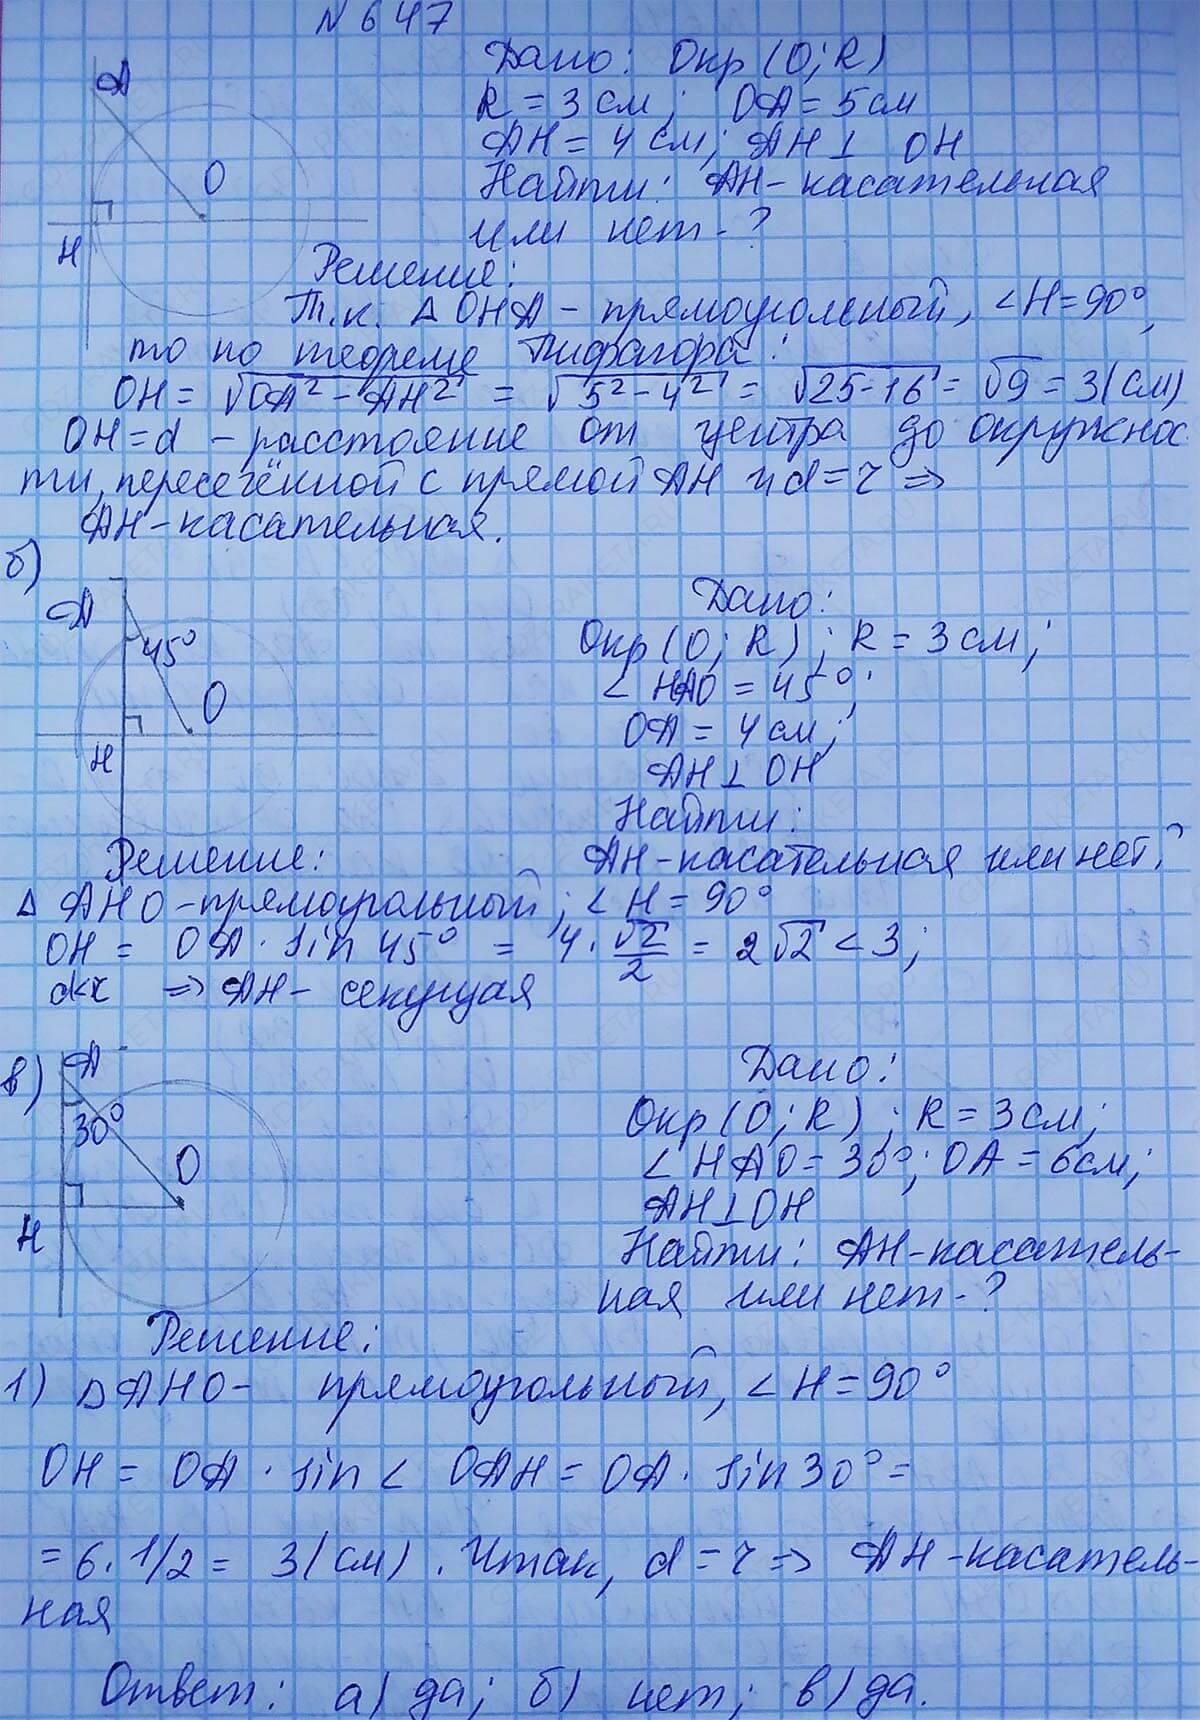 N 647
A
O
H
Дано: Окр (O; R)
R = 3 см; OA = 5 см
AH = 4 см; AH ⊥ OH
Найти: AH - касательная
или нет - ?
Решение:
Т.к. △ OHA - прямоугольный, ∠H = 90°,
то по теореме Пифагора:
OH = √OA² - AH² = √5² - 4² = √25-16 = √9 = 3 (см)
OH = d - расстояние от центра до окружнос
ти, пересечённой с прямой AH и d = r ⇒
AH - касательная.
б)
A
45°
O
H
Дано:
Окр (O; R); R = 3 см;
∠ HAO = 45°;
OA = 4 см;
AH ⊥ OH
Найти:
AH - касательная или нет?
Решение:
△ AHO - прямоугольный; ∠ H = 90°
OH = OA · sin 45° = 4 · √2/2 = 2√2 < 3;
d<r ⇒ AH - секущая
в)
A
30°
O
H
Дано:
Окр (O; R); R = 3 см;
∠ HAO = 30°; OA = 6 см;
AH ⊥ OH
Найти: AH - касатель-
ная или нет - ?
Решение:
1) △ AHO - прямоугольный, ∠ H = 90°
OH = OA · sin ∠ OAH = OA · sin 30° =
= 6 · 1/2 = 3 (см). Итак, d = r ⇒ AH - касатель-
ная
Ответ: а) да; б) нет; в) да.